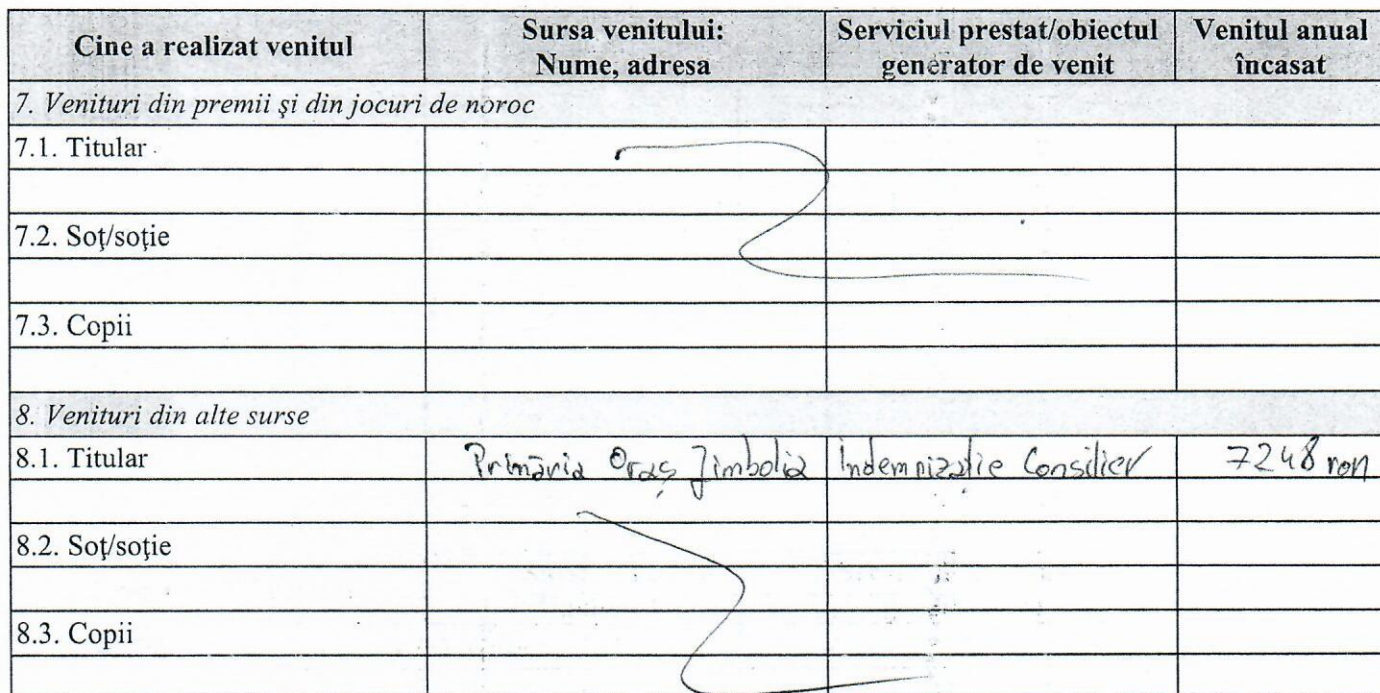 Cine a realizat venitul
Sursa venitului:
Nume, adresa
Serviciul prestat/obiectul
generator de venit
Venitul anual
încasat
7. Venituri din premii şi din jocuri de noroc
7.1. Titular
7.2. Soţ/soţie
7.3. Copii
8. Venituri din alte surse
8.1. Titular Primăria Oraş Jimbolia Indemnizaţie Consilier 7248 ron
8.2. Soţ/soţie
8.3. Copii